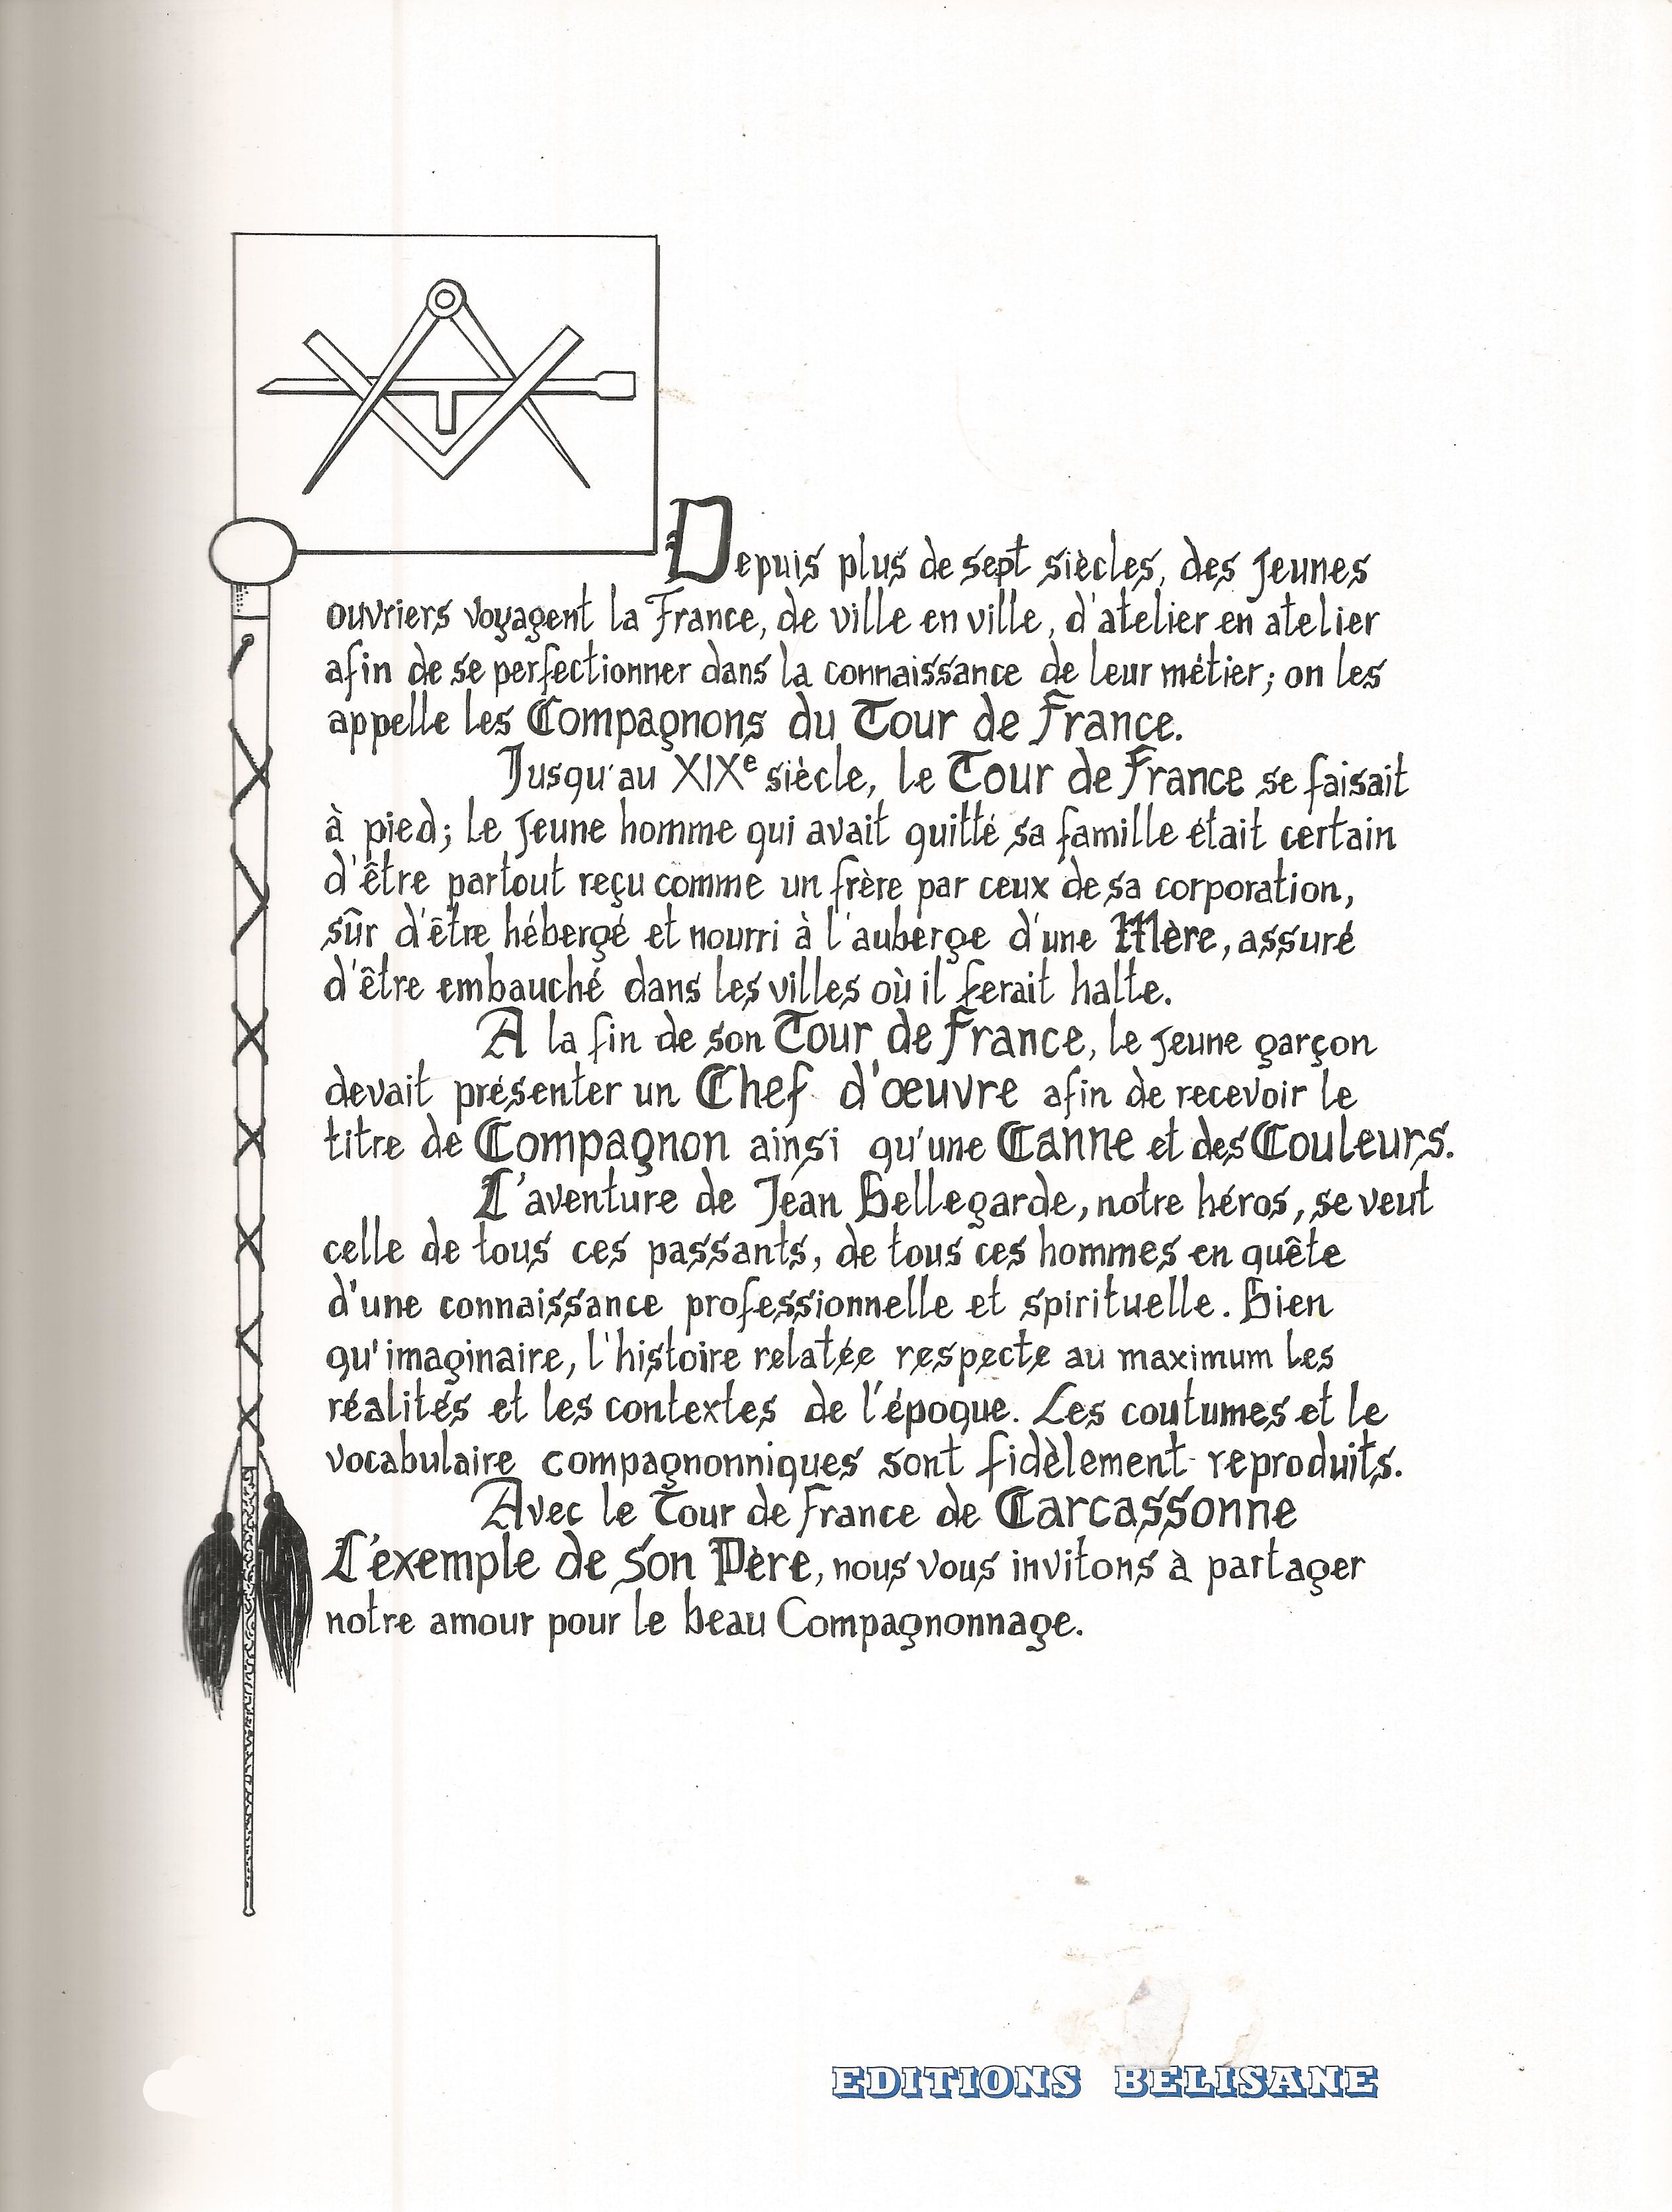 Depuis plus de sept siècles, des jeunes
ouvriers voyagent la France, de ville en ville, d'atelier en atelier
afin de se perfectionner dans la connaissance de leur métier; on les
appelle les Compagnons du Tour de France.
Jusqu'au XIXe siècle, le Tour de France se faisait
à pied; le jeune homme qui avait quitté sa famille était certain
d'être partout reçu comme un frère par ceux de sa corporation,
sûr d'être hébergé et nourri à l'auberge d'une Mère, assuré
d'être embauché dans les villes où il ferait halte.
A la fin de son Tour de France, le jeune garçon
devait présenter un Chef d'œuvre afin de recevoir le
titre de Compagnon ainsi qu'une Canne et des Couleurs.
L'aventure de Jean Bellegarde, notre héros, se veut
celle de tous ces passants, de tous ces hommes en quête
d'une connaissance professionnelle et spirituelle. Bien
qu'imaginaire, l'histoire relatée respecte au maximum les
réalités et les contextes de l'époque. Les coutumes et le
vocabulaire compagnonniques sont fidèlement reproduits.
Avec le Tour de France de Carcassonne
L'exemple de Son Père, nous vous invitons à partager
notre amour pour le beau Compagnonnage.
EDITIONS BELISANE